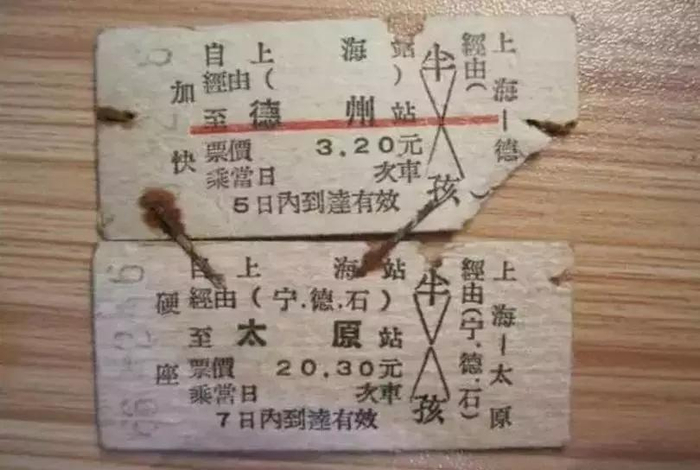 加快
自上海站
經由( )
至德州站
票價 3.20元
乘當日 次車
5日內到達有效
半孩
上海—德
經由( )
硬座
自上海站
經由(宁.德.石)
至太原站
票價 20.30元
乘當日 次車
7日內到達有效
半孩
上海—太原
經由(宁.德.石)